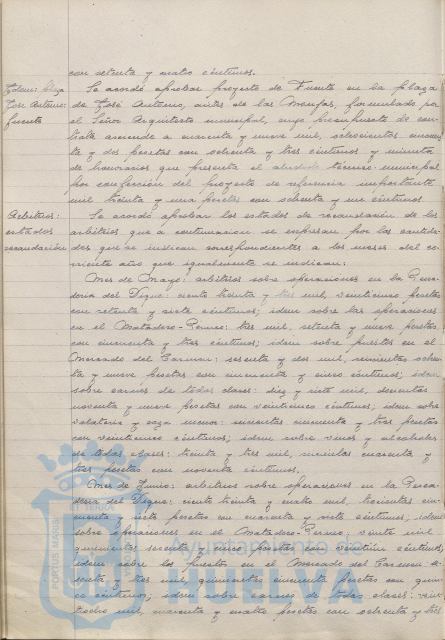 con setenta y cuatro céntimos.
Idem: Plaza José Antonio: fuente
Se acordó aprobar proyecto de Fuente en la plaza
de José Antonio, antes de las Monjas, formulado por
el Señor Arquitecto municipal, cuyo presupuesto de con-
trata asciende a cuarenta y nueve mil, setecientas cincuen-
ta y dos pesetas con ochenta y tres céntimos y minuta
de honorarios que presenta el aludido técnico municipal
por confección del proyecto de referencia importante
mil treinta y una pesetas con ochenta y un céntimos.
Arbitrios: estados recaudación
Se acordó aprobar los estados de recaudación de los
arbitrios que a continuación se expresan por las cantida-
des que se indican correspondientes a los meses del co-
rriente año que igualmente se indican:
Mes de Mayo: arbitrios sobre operaciones en la Pesca-
dería del Dique: ciento treinta y tres mil, veinticinco pesetas
con setenta y siete céntimos; idem sobre las operaciones
en el Matadero-Romeo: tres mil, setenta y nueve pesetas
con cincuenta y tres céntimos; idem sobre puestos en el
Mercado del Carmen: sesenta y dos mil, ochen-
ta y nueve pesetas con cincuenta y cinco céntimos; idem
sobre carnes de todas clases: diez y siete mil, doscientas
noventa y nueve pesetas con veinticinco céntimos; idem sobre
volatería y caza menor: cincuenta y tres pesetas
con veinticinco céntimos; idem sobre vinos y alcoholes
de todas clases: treinta y tres mil, cuarenta y
tres pesetas con noventa céntimos.
Mes de Junio: arbitrios sobre operaciones en la Pesca-
dería del Dique: ciento treinta y cuatro mil, trescientas cin-
cuenta y siete pesetas con cuarenta y siete céntimos; idem
sobre operaciones en el Matadero-Romeo: veinte mil,
quinientas sesenta y cinco pesetas con veintiún céntimos;
idem sobre los puestos en el Mercado del Carmen: se-
senta y tres mil, quinientas cincuenta pesetas con quin-
ce céntimos; idem sobre carnes de todas clases: vein-
tiocho mil, cuarenta y cuatro pesetas con ochenta y tres
PORTUS MARIS ET TERRAE
Ayuntamiento de
HUELVA